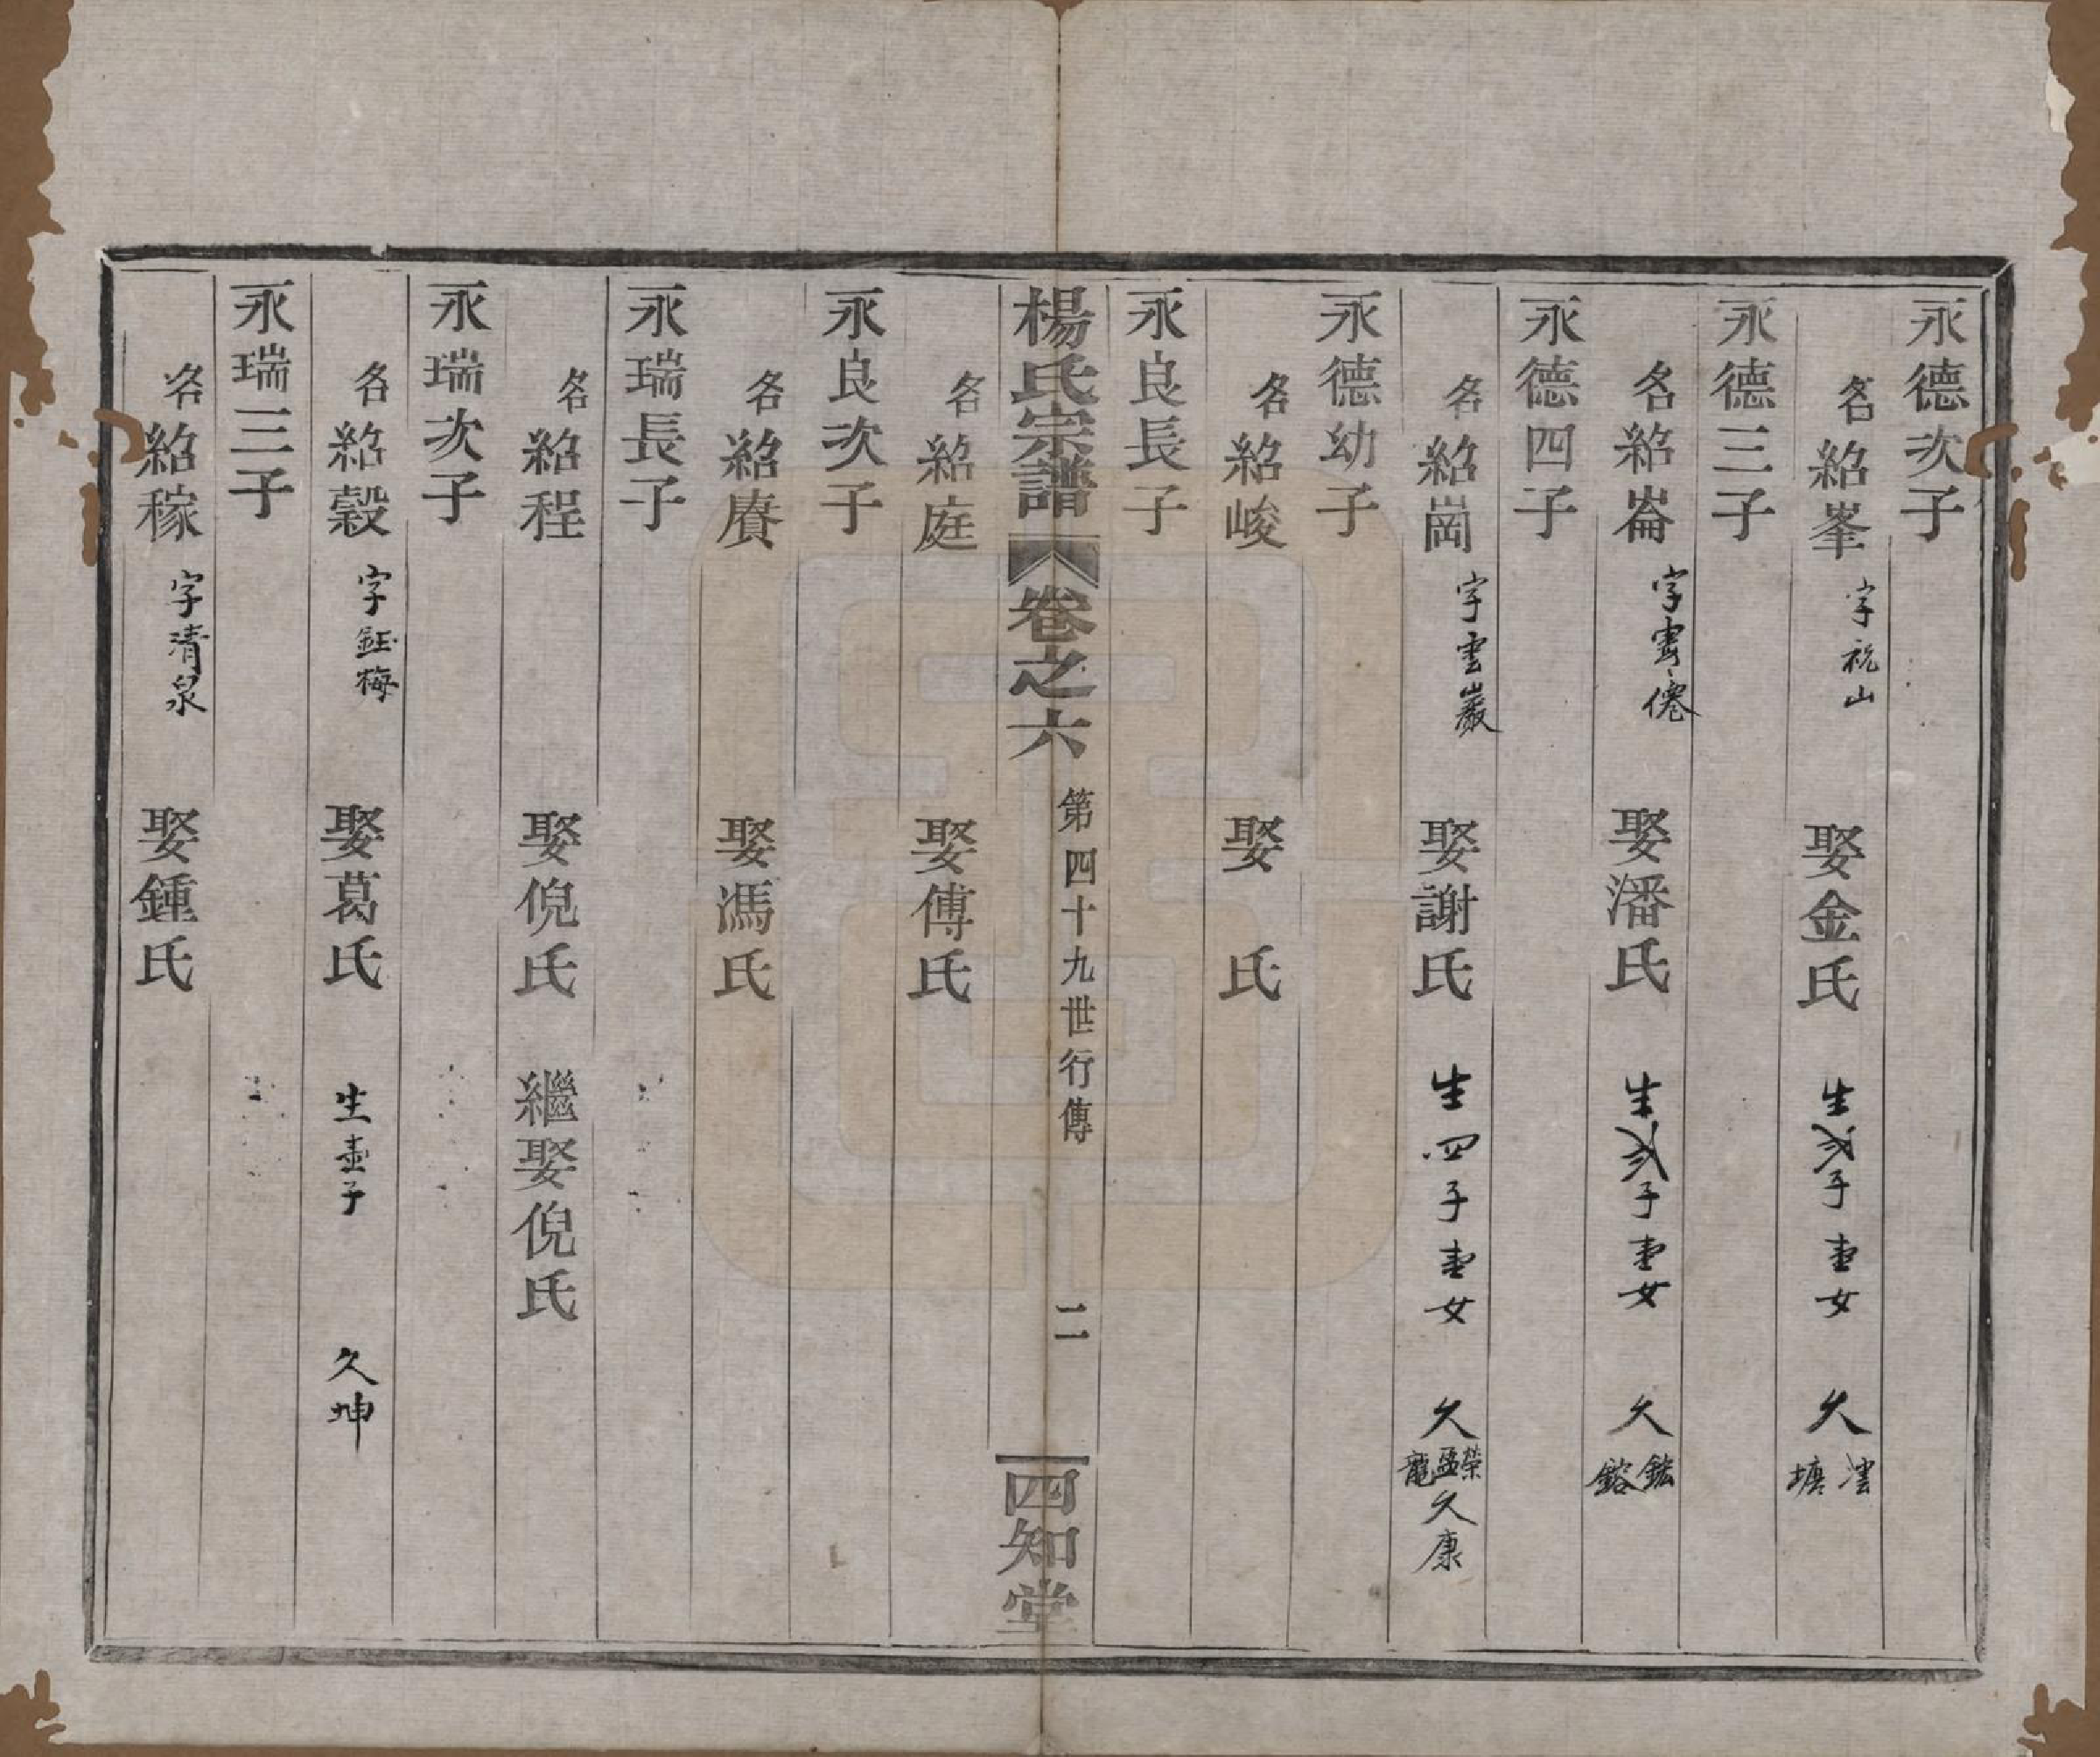 永德次子
名紹峯 字祝山 娶金氏 生弍子壹女 久 澐 塘
永德三子
名紹崙 字雲僊 娶潘氏 生弍子壹女 久 鋐 鎔
永德四子
名紹崗 字雲巖 娶謝氏 生四子壹女 久 榮 盈 龍 久康
永德幼子
名紹峻 娶 氏
永良長子
楊氏宗譜 卷之六 第四十九世行傳 二 四知堂
名紹庭 娶傅氏
永良次子
名紹賡 娶馮氏
永瑞長子
名紹程 娶倪氏 繼娶倪氏
永瑞次子
名紹穀 字鈺梅 娶葛氏 生壹子 久坤
永瑞三子
名紹稼 字清泉 娶鍾氏